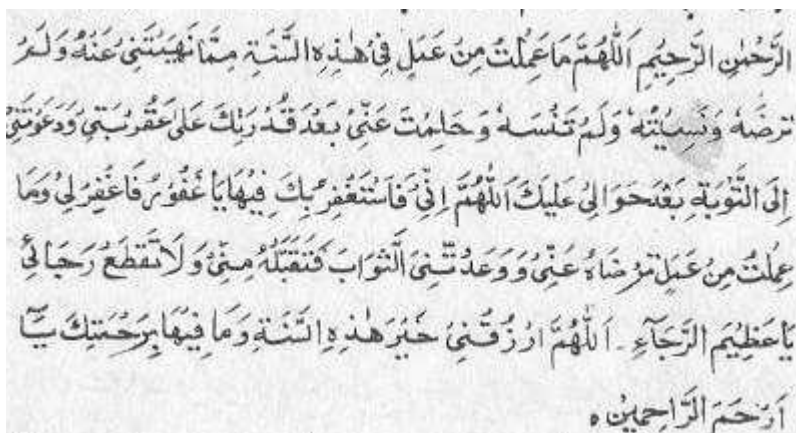 الرَّحْمٰنِ الرَّحِيْمِ اَللّٰهُمَّ مَا عَمِلْتُ مِنْ عَمَلٍ فِىْ هٰذِهِ السَّنَةِ مِمَّا نَهَيْتَنِىْ عَنْهُ وَلَمْ
تَرْضَهُ وَنَسِيْتُهُ وَلَمْ تَنْسَهُ وَحَلِمْتَ عَنِّىْ بَعْدَ قُدْرَتِكَ عَلٰى عَقُوْبَتِىْ وَدَعَوْتَنِىْ
اِلَى التَّوْبَةِ بَعْدَ حَوَالِىْ عَلَيْكَ اَللّٰهُمَّ اِنِّىْ فَاَسْتَغْفِرُ بِكَ فِيْهَا يَا غَفُوْرُ فَاغْفِرْ لِىْ وَمَا
عَمِلْتُ مِنْ عَمَلٍ تَرْضَاهُ عَنِّىْ وَوَعَدْتَّنِىْ الثَّوَابَ فَتَقَبَّلْهُ مِنِّىْ وَلَا تَقْطَعْ رَجَائِىْ
يَا عَظِيْمَ الرَّجَآءِ ۔ اَللّٰهُمَّ ارْزُقْنِىْ خَيْرَ هٰذِهِ السَّنَةِ وَمَا فِيْهَا بِرَحْمَتِكَ يَآ
اَرْحَمَ الرَّاحِمِيْنَ ه